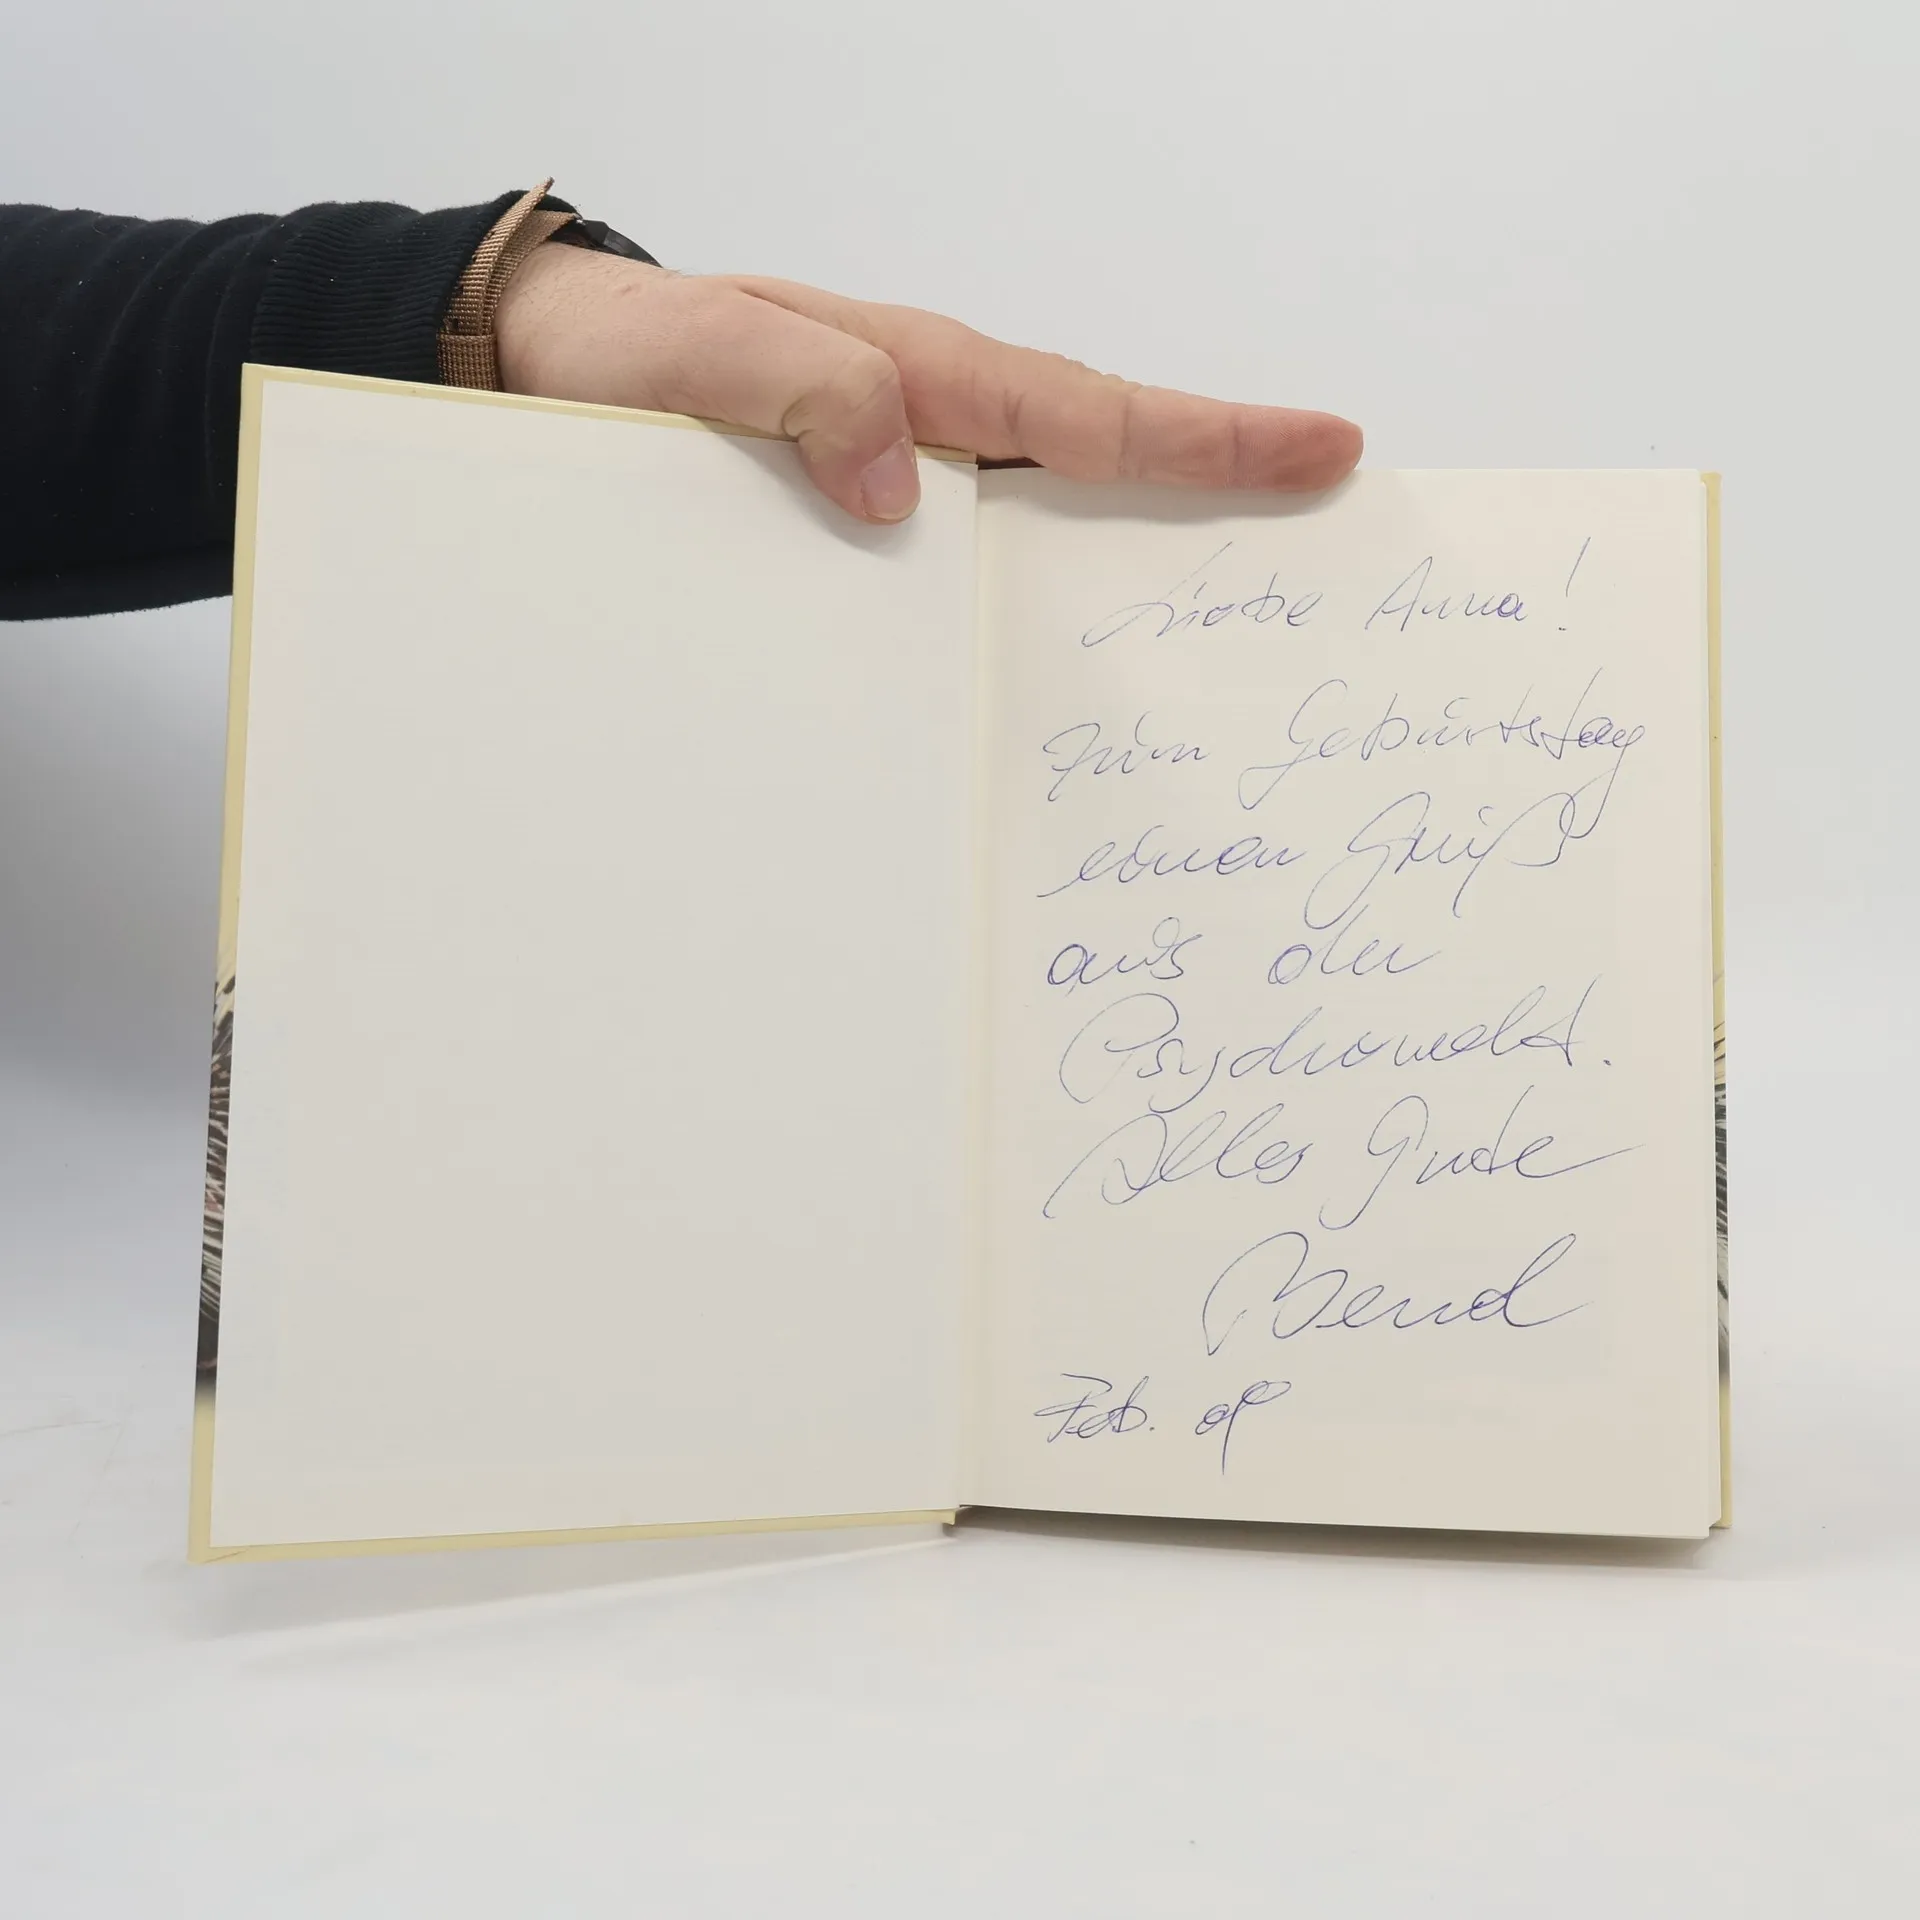 Liebe Anna!
Zum Geburtstag
einen Gruß
aus der
Psychowelt.
Alles Gute
Bernd
Feb. 09